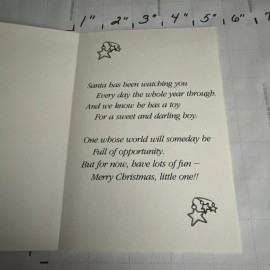 1" 2" 3" 4" 5" 6" 7
Santa has been watching you
Every day the whole year through.
And we know he has a toy
For a sweet and darling boy.
One whose world will someday be
Full of opportunity.
But for now, have lots of fun —
Merry Christmas, little one!!